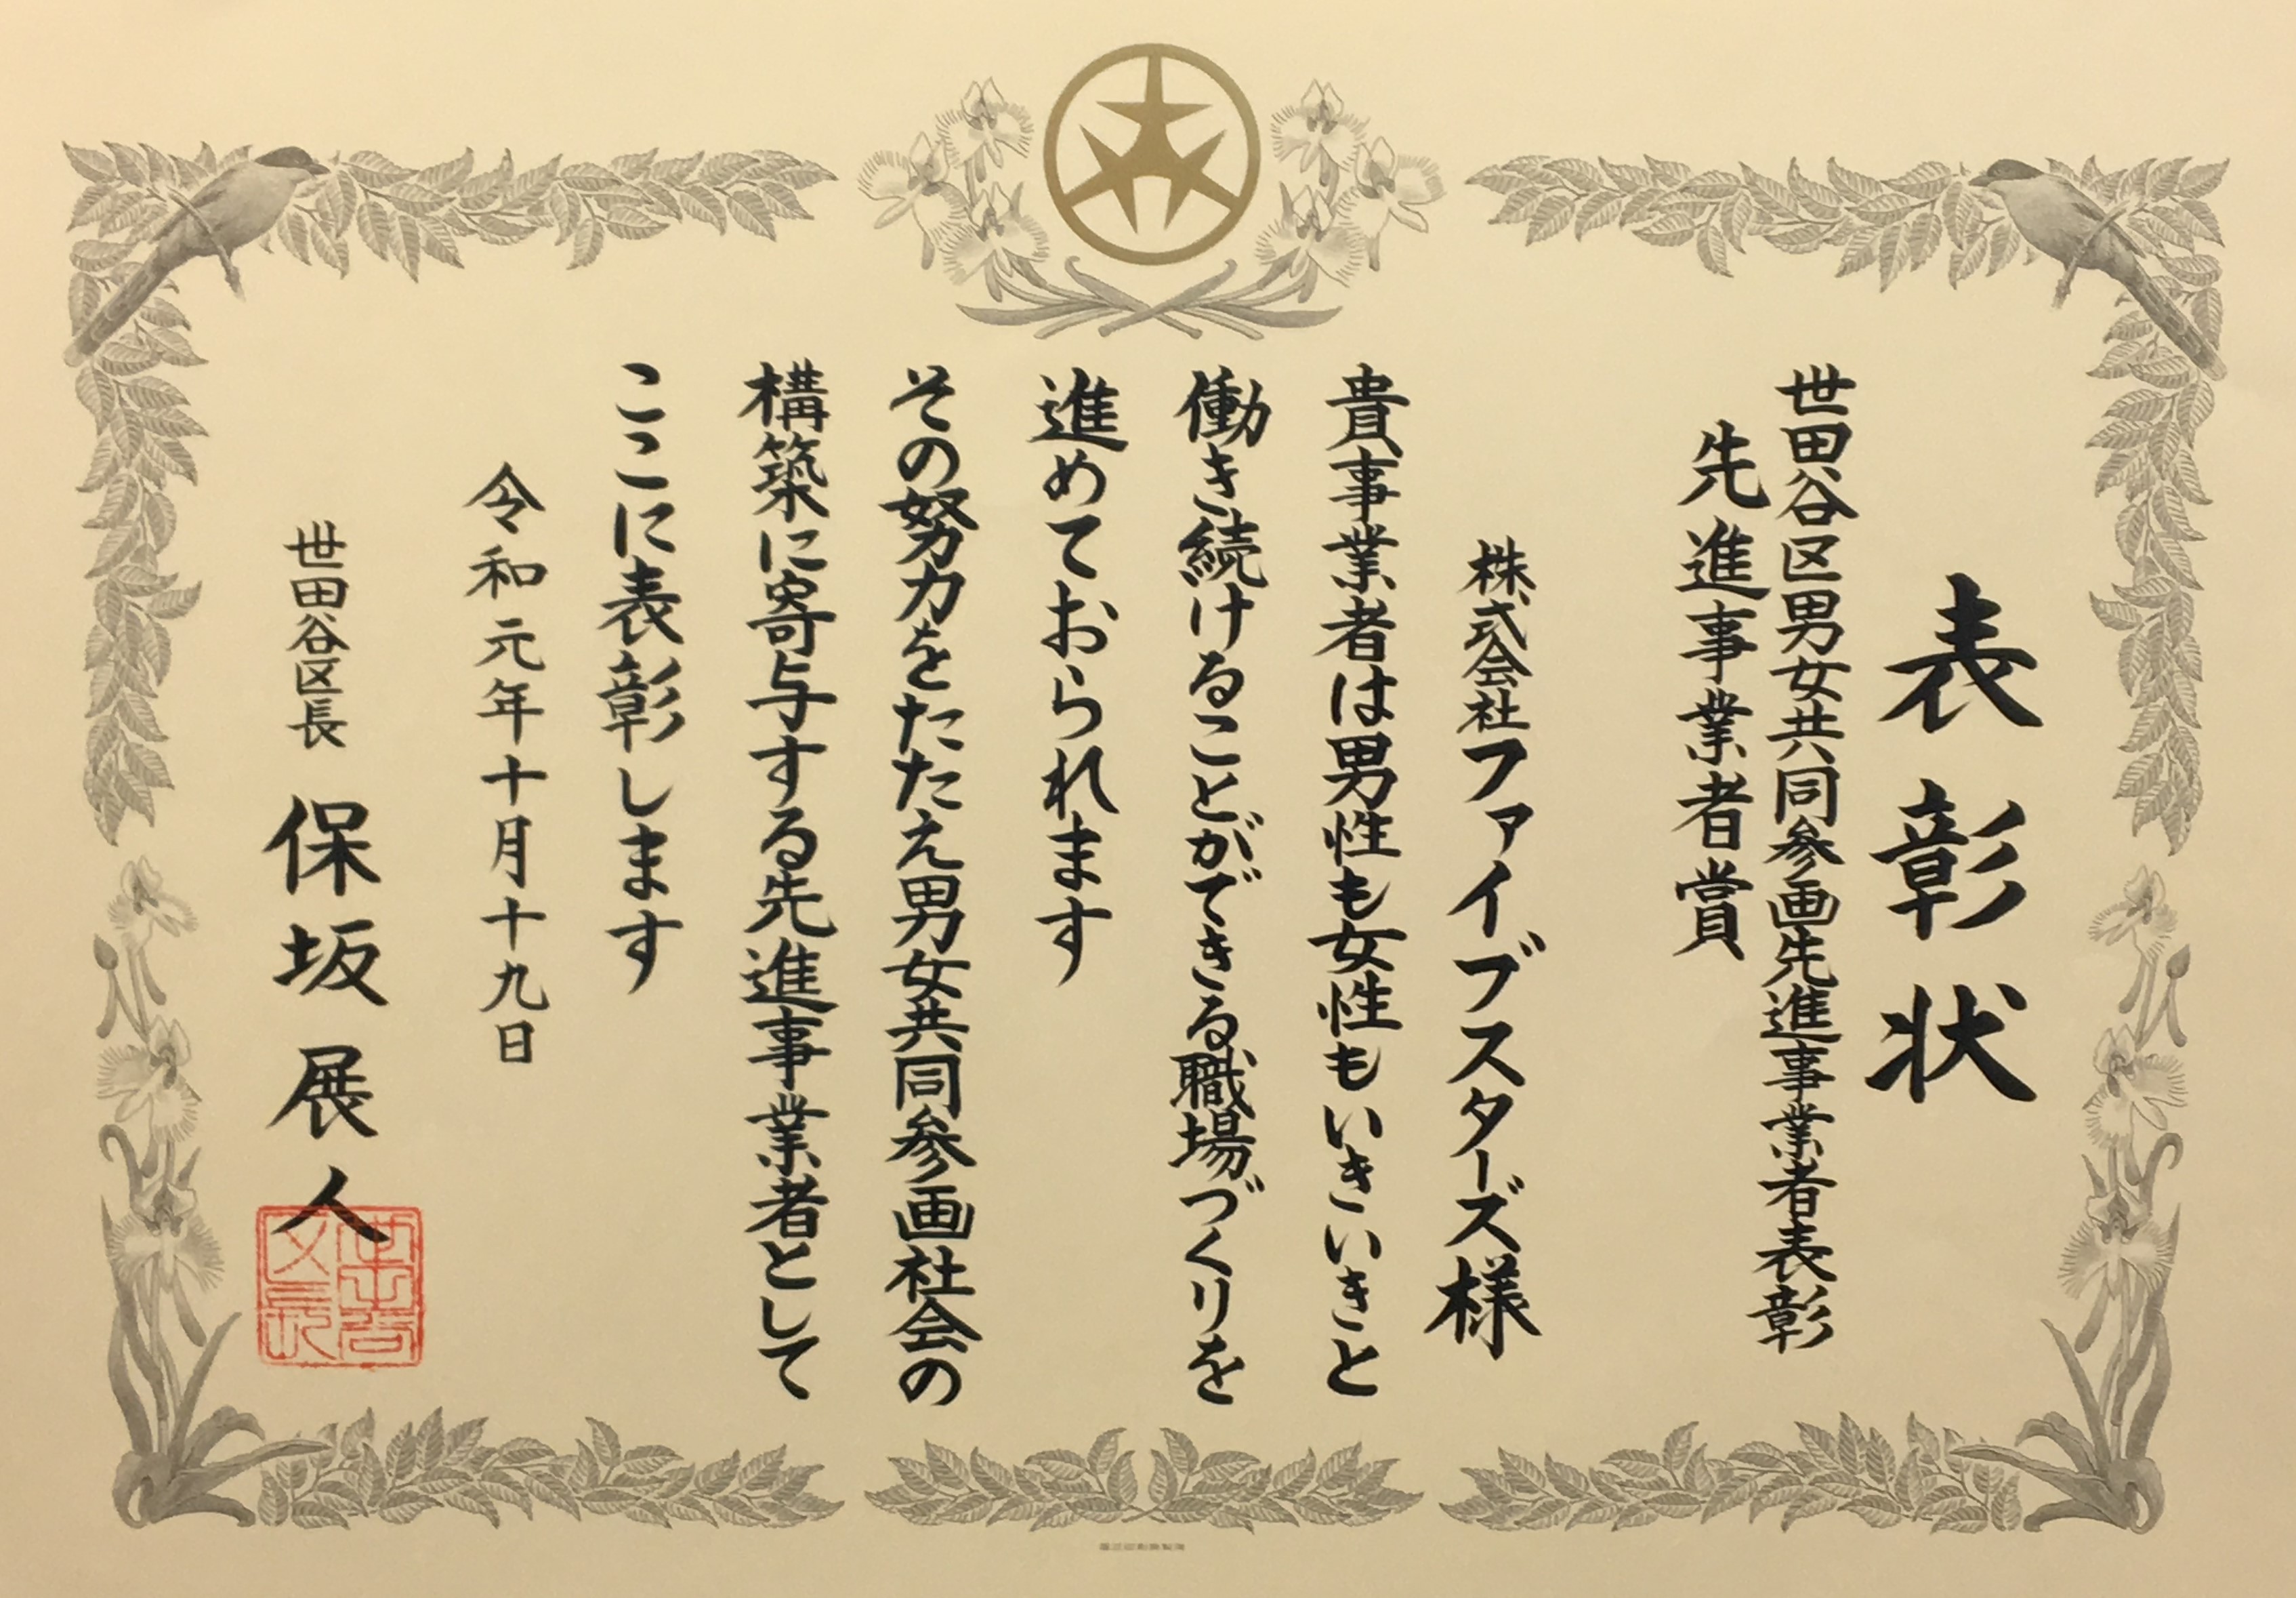 表彰状
世田谷区男女共同参画先進事業者表彰
先進事業者賞
株式会社ファイブスターズ様
貴事業者は男性も女性もいきいきと
働き続けることができる職場づくりを
進めておられます
その努力をたたえ男女共同参画社会の
構築に寄与する先進事業者として
ここに表彰します
令和元年十月十九日
世田谷区長 保坂展人